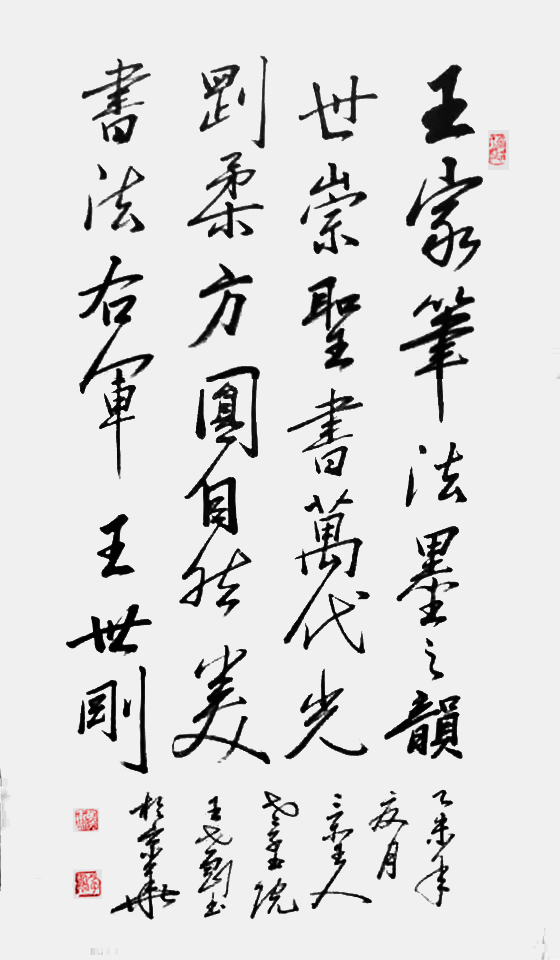 王家筆法墨之韻
世崇聖書萬代光
剛柔方圓自然美
書法右軍 王世剛
乙未年
夏月
主人
院
王世剛書
於京華